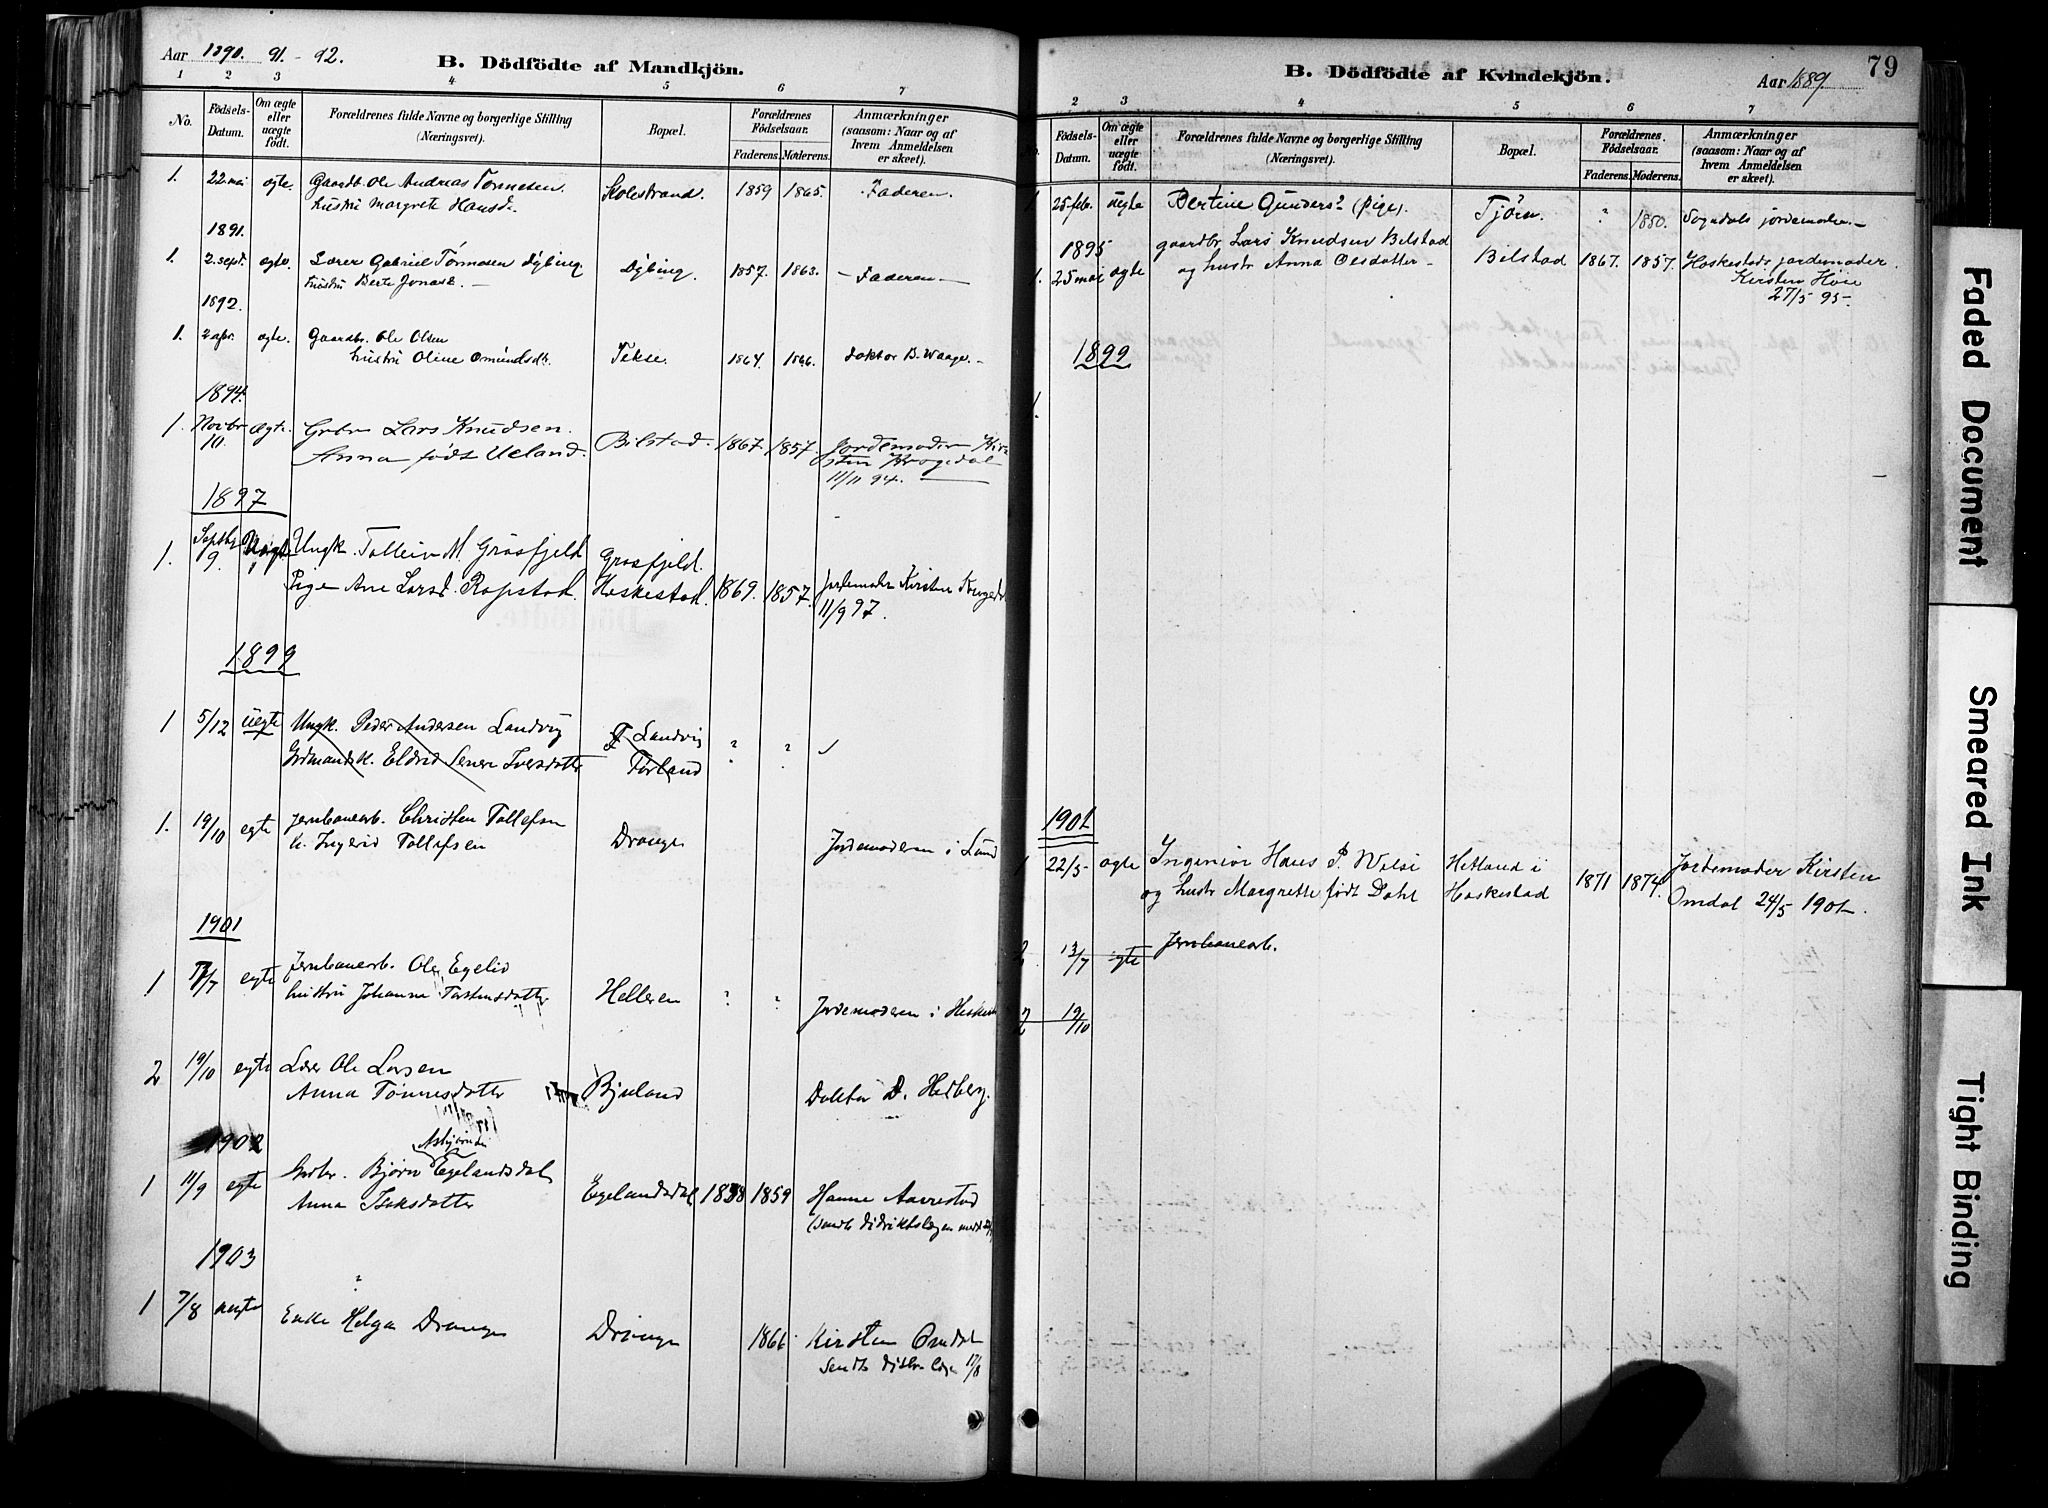 Aar 1890. 91. - 92.
B. Dödfödte af Mandkjön.
1 2 3 4 5 6 7
No.
Födsels-Datum.
Om ægte eller uægte födt.
Forældrenes fulde Navne og borgerlige Stilling (Næringsvei).
Bopæl.
Forældrenes Födselsaar.
Faderens. Moderens.
Anmærkninger (saasom: Naar og af hvem Anmeldelsen er skeet).
1. 22 mai ægte. Gaardb. Ole Andreas Tønnesen. Skolestrand. 1859 1865. Faderen.
hustru Margrete Hansd.
1891.
1. 2. sept. ægte. Lærer Gabriel Tønnesen Dybing Dybing. 1857. 1863. - Faderen -
hustru Berte Jonasd. -
1892.
1. 2 apr. ægte. Gaardbr. Ole Olsen
hustru Oline Omundsdt. Tekse. 1864. 1866. Doktor B. Waage. -
1894.
1. Novbr 10. Ægte. Grbr Lars Knudsen. Bilstad. 1867. 1857. Jordemoder Kir-
Anna født Ueland. sten Krogedal
11/11 94.
1897
1. Septbr 9. Uægte Ungk. Tolleiv M. Grøsfjeld Grøsfjeld.
Pige Ane Larsd. Rapstad. Heskestad. 1869. 1857. Jordemoder Kirsten
11/9 97.
1899
1 5/12 uegte Ungk. Peder Andersen Landvig Landvig " " ✓
Eldrid Iversdatter Törland " "
1. 19/10 egte Jernbanearb. Christen Tollefsen Drange Jordemoderen i Lund
h. Ingerid Tollefsen
1901
1 /7 egte Jernbanearb. Ole Egelid
hustru Johanne Torstensdatter Helleren " " Jordemoderen i
2 19/10 egte Lærer Ole Larsen
Anna Tønnesdatter Bjuland Doktor D. Hedberg.
1902
1 11/9 egte Grbr. Bjørn Egelandsdal Egelandsdal 1859 Hanne Aarrestad
Anna
1903
1 7/8 uegte Enke Helga Drange Drange 1866 Kirsten Omdal
17/8
79
B. Dödfödte af Kvindekjön.
Aar 1889
2 3 4 5 6 7
Födsels-Datum.
Om ægte eller uægte födt.
Forældrenes fulde Navne og borgerlige Stilling (Næringsvei).
Bopæl.
Forældrenes Födselsaar.
Faderens. Moderens.
Anmærkninger (saasom: Naar og af hvem Anmeldelsen er skeet).
1 25 feb. uegte Bertine Gunders. (pige). Tjörn. " 1850. Sogndals jordemoder. -
1895
1. 25 mai ægte gaardbr Lars Knudsen Bilstad
og hustr Anna Olsdatter - Bilstad 1867. 1857. Heskestads jordemoder.
Kirsten Høie
27/5 95 -
1899
1.
1901
1 22/5 ægte Ingeniør Hans P. Hetland i Heskestad 1871 1874. Jordemoder Kirsten
og hustr Margrethe født Dahl Omdal 24/5 1901.
2 13/7 egte Jernbanearb.
2 19/10
Faded Document
Smeared Ink
Tight Binding